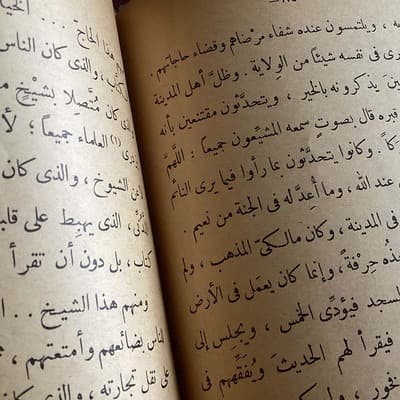 ـه، ويلتمسون عنده شفاء مرضاهم وقضاء حاجاتهم.
رى فى نفسه شيئًا من الولاية. وظلَّ أهل المدينة
ـنينَ يذكرونه بالخير، ويتحدَّثون مقتنعين بأنه
قبره قال بصوتٍ سمعه المشيِّعون جميعاً: اللهمَّ
ـَكاً. وكانوا يتحدَّثون بما رأوا فيما يرى النائم
عند الله، وما أعدَّ له فى الجنة من نعيم.
فى المدينة، وكان مالكىّ المذهب، ولم
ـذُه حِرفةً، وإنما كان يعمل فى الأرض
ـسجد فيؤدِّى الخمس، ويجلس إلى
فيقرأ لهم الحديثَ ويُفقِّههم فى
ـخور، ولـ
ـه هذا الحاج ... الخيا
ـكتّاب، والذى كان الناس
كان متَّصِلا بشيْخٍ مـ
ـرى (١) العلماء جميعاً؛ لأ
ـن الشيوخ، والذى كان
ـدُنِّىّ، الذى يهبِط على قلبـ
كتاب، بل دون أن تقرأ ا
ومنهم هذا الشيخ ... ا
الناس بضائعهم وأمتعتهم،
على نقل تجارته، والذى كان